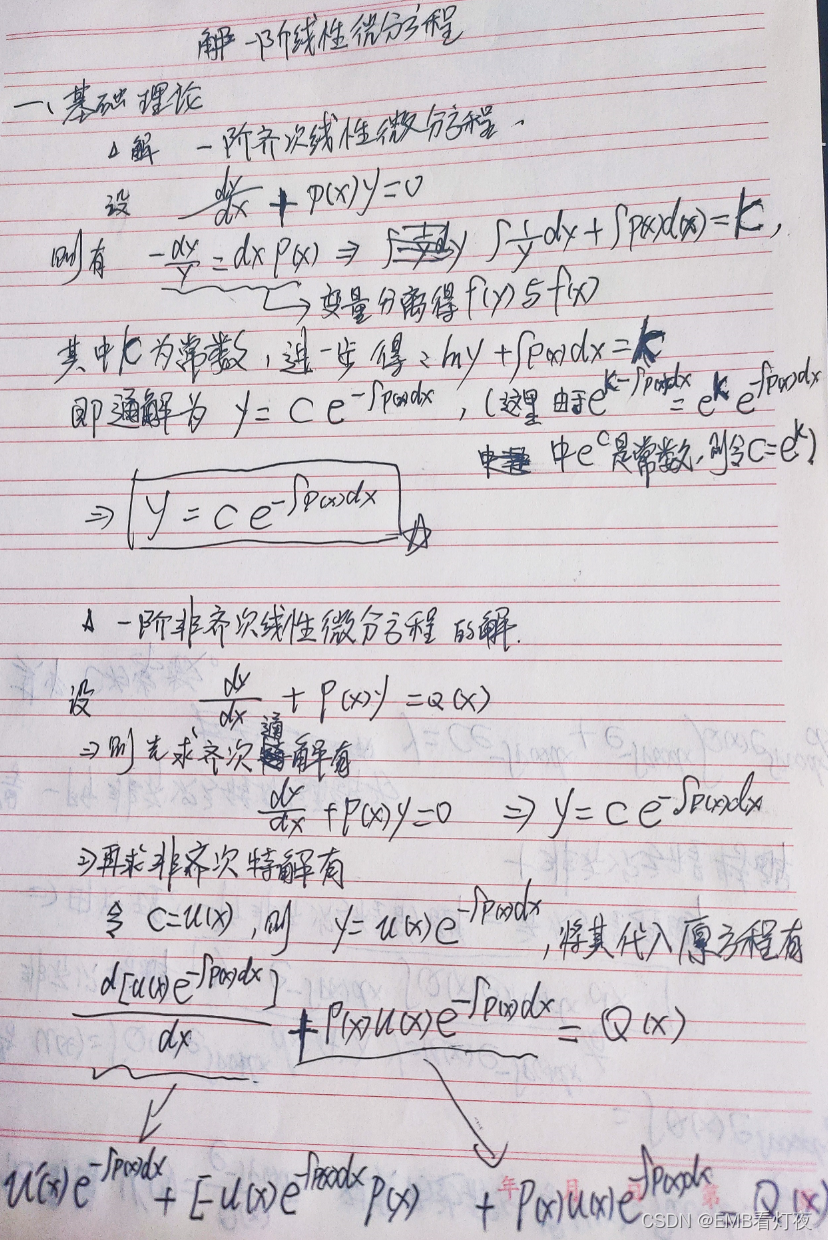 解一阶线性微分方程
一、基础理论
△解 一阶齐次线性微分方程.
设 dy/dx + P(x)y=0
则有 -dy/y = dx P(x) ⇒ ∫1/y dy + ∫P(x)d(x) = K,
→ 变量分离得 f(y)与f(x)
其中K为常数,进一步得: lny + ∫P(x)dx = K
即通解为 y = C e^{-∫P(x)dx}, (这里由于 e^{K-∫P(x)dx} = e^K e^{-∫P(x)dx}
中e^C是常数,则令C=e^K)
⇒ y = C e^{-∫P(x)dx} ☆
△ 一阶非齐次线性微分方程的解.
设 dy/dx + P(x)y = Q(x)
⇒ 则先求齐次通解有
dy/dx + P(x)y=0 ⇒ y = C e^{-∫P(x)dx}
⇒再求非齐次特解有
令 C=u(x), 则 y = u(x)e^{-∫P(x)dx}, 将其代入原方程有
d[u(x)e^{-∫P(x)dx}]/dx + P(x)u(x)e^{-∫P(x)dx} = Q(x)
u'(x)e^{-∫P(x)dx} + [-u(x)e^{-∫P(x)dx} P(x) + P(x)u(x)e^{-∫P(x)dx} = Q(x)
年 月 第
CSDN @EMB看灯夜